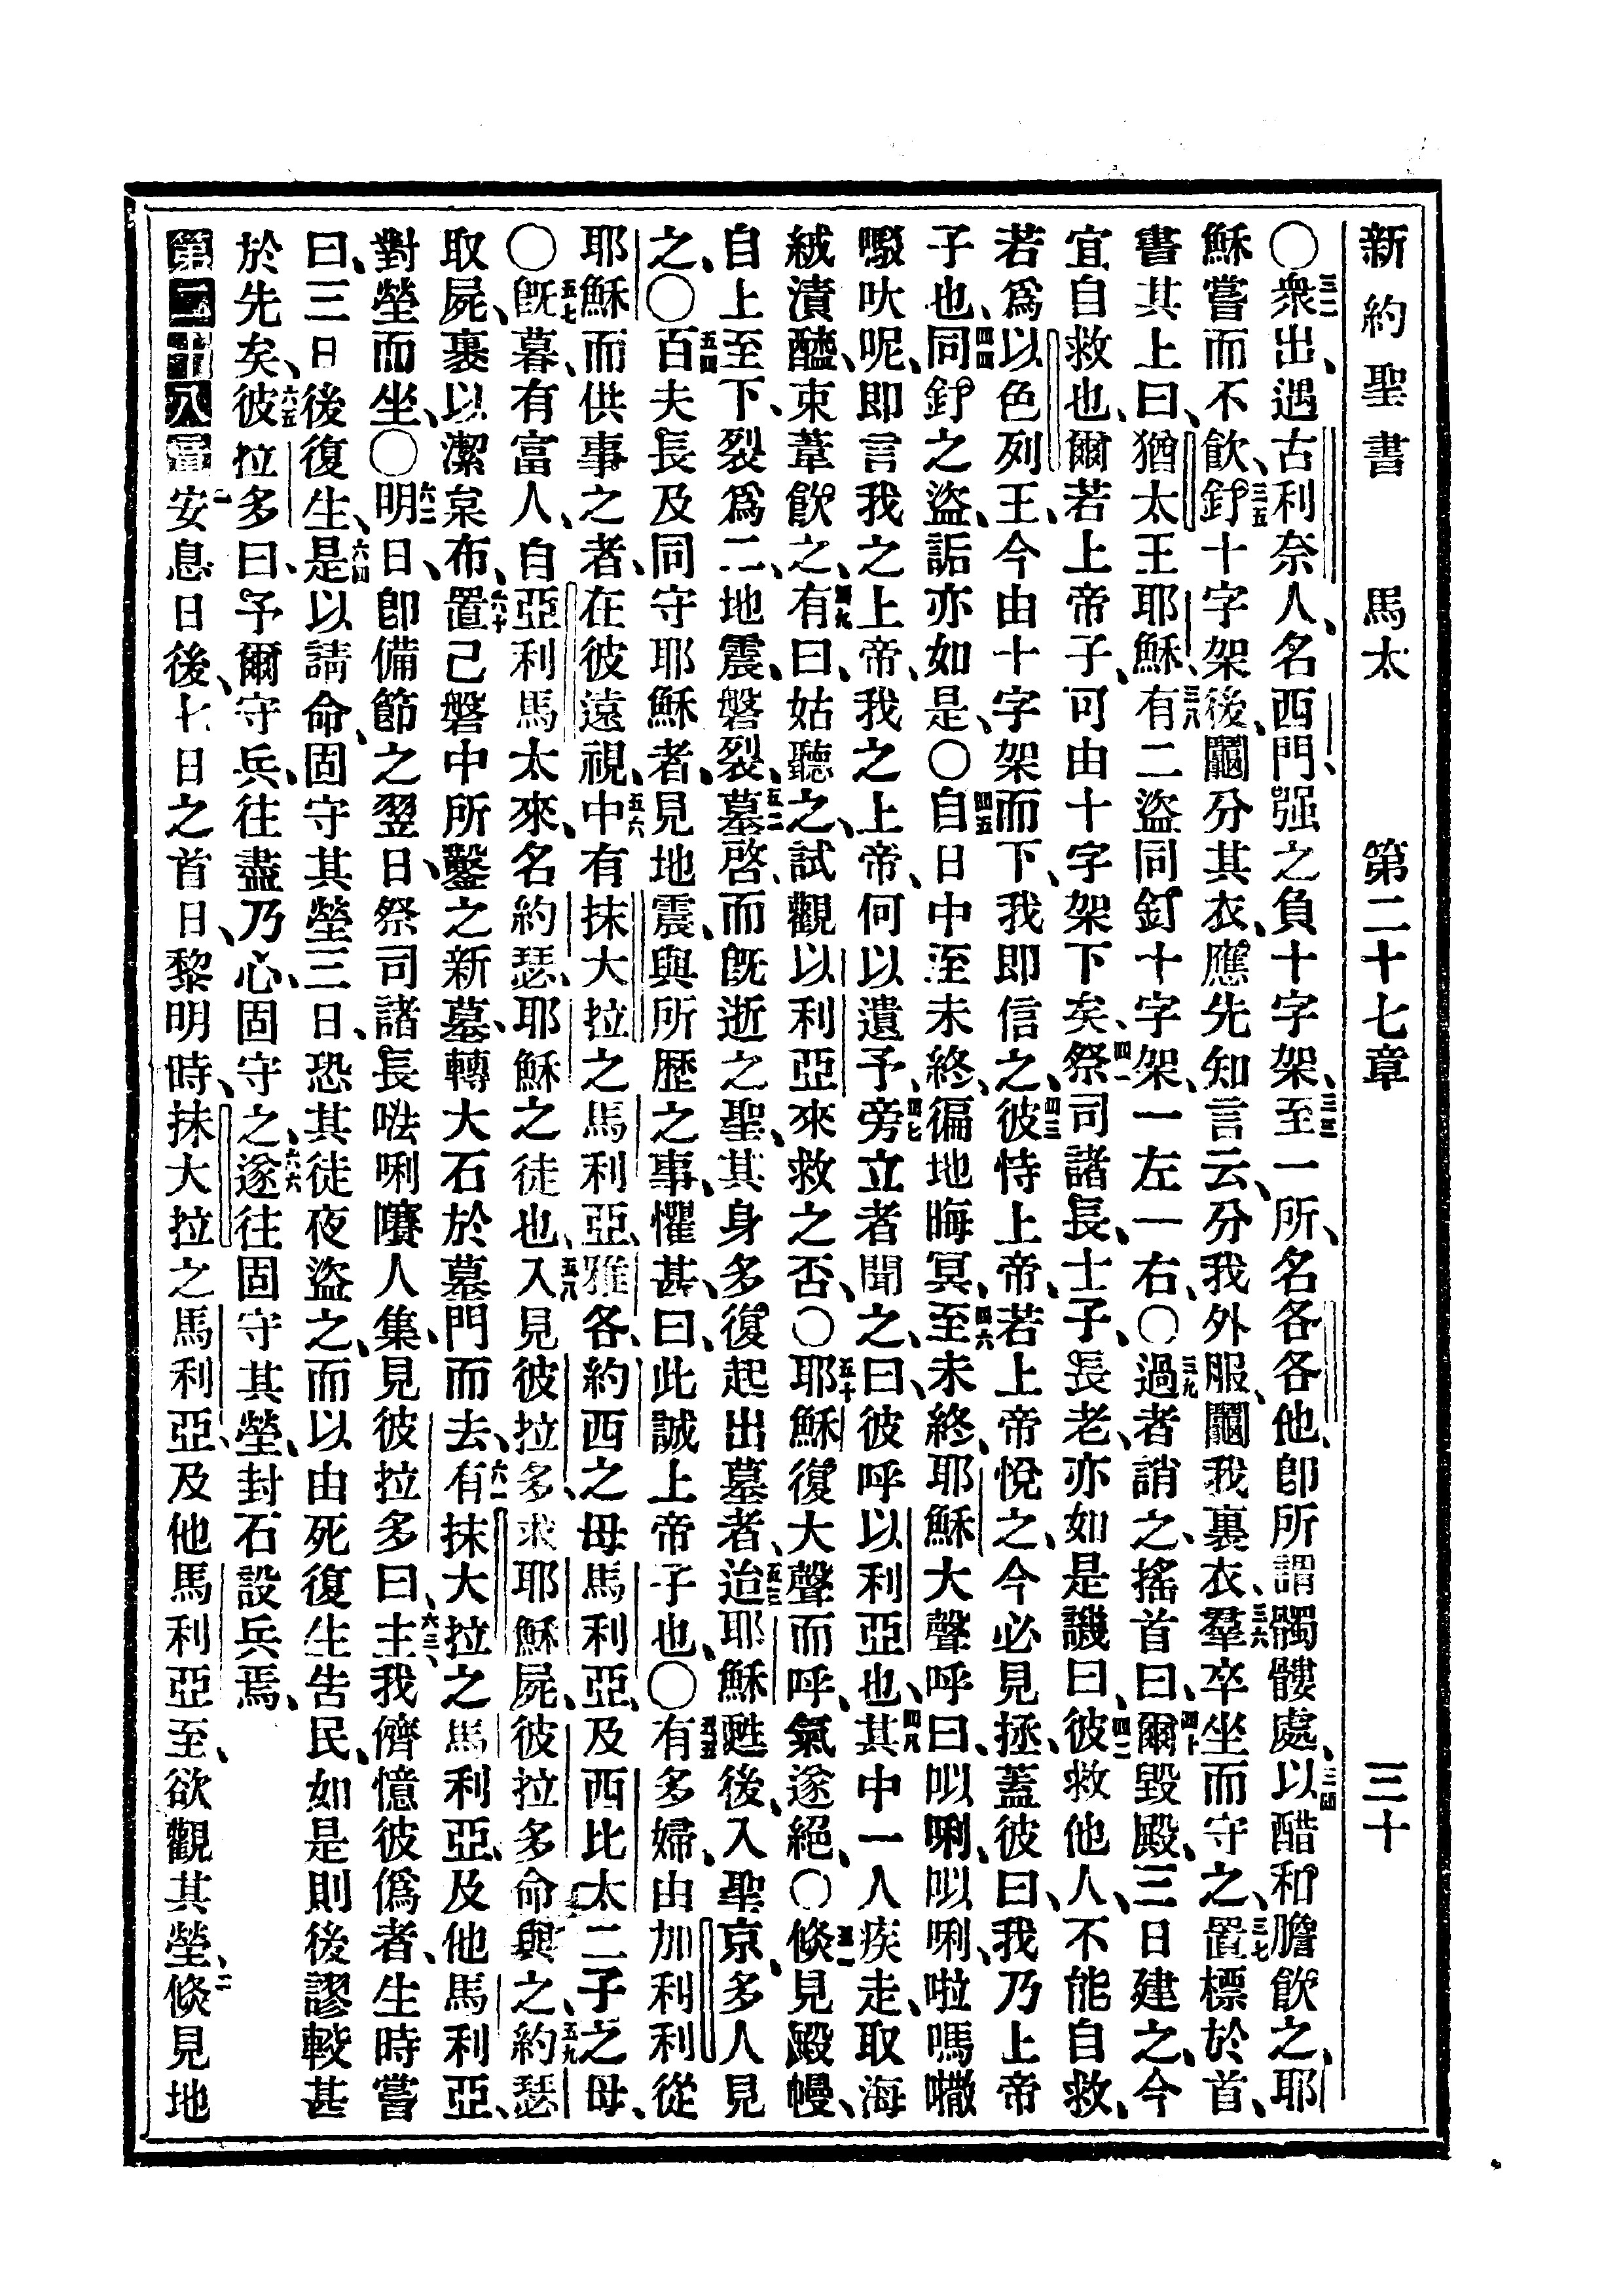 新約聖書 馬太 第二十七章 三十
〇三二衆出、遇古利奈人、名西門、强之負十字架、三三至一所、名各各他、卽所謂髑髏處、三四以醋和膽飮之、耶
穌嘗而不飮、三五釘十字架後、鬮分其衣、應先知言云、分我外服、鬮我裏衣、三六羣卒坐而守之、三七置標於首、
書其上曰、猶太王耶穌、三八有二盜同釘十字架、一左一右、〇三九過者誚之、搖首曰、四十爾毀殿、三日建之、今
宜自救也、爾若上帝子、可由十字架下矣、四一祭司諸長、士子、長老、亦如是譏曰、四二彼救他人、不能自救、
若爲以色列王、今由十字架而下、我即信之、四三彼恃上帝、若上帝悅之、今必見拯、蓋彼曰、我乃上帝
子也、四四同釘之盜、詬亦如是、〇四五自日中至未終、徧地晦冥、四六至未終、耶穌大聲呼曰、㕥唎、㕥唎、啦嗎㗔
嚘吠呢、即言我之上帝、我之上帝、何以遺予、四七旁立者聞之、曰、彼呼以利亞也、四八其中一人疾走、取海
絨漬醯、束葦飮之、四九有曰、姑聽之、試觀以利亞來救之否、〇五十耶穌復大聲而呼、氣遂絕、〇五一倐見殿幔、
自上至下、裂爲二、地震、磐裂、五二墓啓、而旣逝之聖、其身多復起出墓者、五三迨耶穌甦後、入聖京、多人見
之、〇五四百夫長及同守耶穌者、見地震、與所歷之事、懼甚、曰、此誠上帝子也、〇五五有多婦、由加利利從
耶穌而供事之者、在彼遠視、五六中有抹大拉之馬利亞、雅各、約西之母馬利亞、及西比太二子之母、
〇五七旣暮、有富人、自亞利馬太來、名約瑟、耶穌之徒也、五八入見彼拉多、求耶穌屍、彼拉多命與之、五九約瑟
取屍、裹以潔枲布、六十置己磐中所鑿之新墓、轉大石於墓門而去、六一有抹大拉之馬利亞、及他馬利亞、
對塋而坐、〇六二明日、卽備節之翌日、祭司諸長、𠵽唎㘔人集、見彼拉多曰、六三主、我儕憶彼僞者、生時嘗
曰、三日後復生、六四是以請命、固守其塋三日、恐其徒夜盜之、而以由死復生告民、如是則後謬較甚
於先矣、六五彼拉多曰、予爾守兵、往盡乃心、固守之、六六遂往固守其塋、封石設兵焉、
第二十八章 一安息日後、七日之首日、黎明時、抹大拉之馬利亞、及他馬利亞至、欲觀其塋、二倐見地